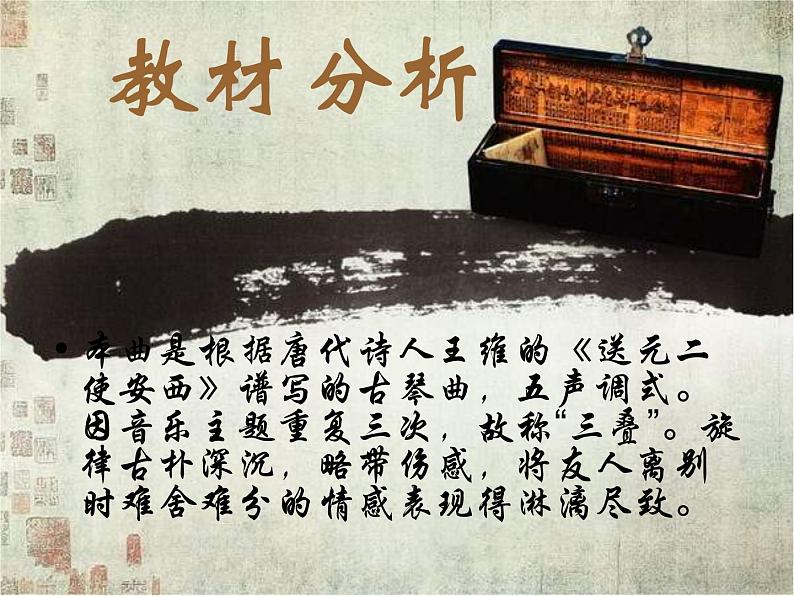 教材分析
• 本曲是根据唐代诗人王维的《送元二
使安西》谱写的古琴曲，五声调式。
因音乐主题重复三次，故称“三叠”。旋
律古朴深沉，略带伤感，将友人离别
时难舍难分的情感表现得淋漓尽致。